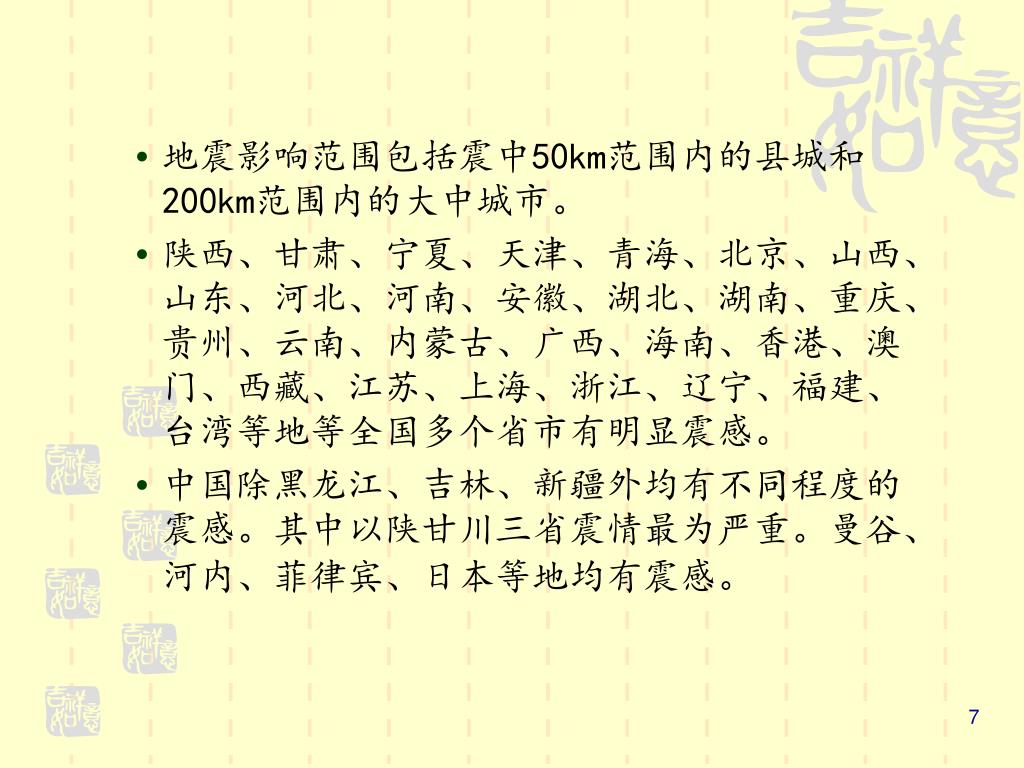 吉祥如意
• 地震影响范围包括震中50km范围内的县城和
200km范围内的大中城市。
• 陕西、甘肃、宁夏、天津、青海、北京、山西、
山东、河北、河南、安徽、湖北、湖南、重庆、
贵州、云南、内蒙古、广西、海南、香港、澳
门、西藏、江苏、上海、浙江、辽宁、福建、
台湾等地等全国多个省市有明显震感。
• 中国除黑龙江、吉林、新疆外均有不同程度的
震感。其中以陕甘川三省震情最为严重。曼谷、
河内、菲律宾、日本等地均有震感。
吉祥如意
吉祥如意
吉祥如意
吉祥如意
吉祥如意
吉祥如意
7